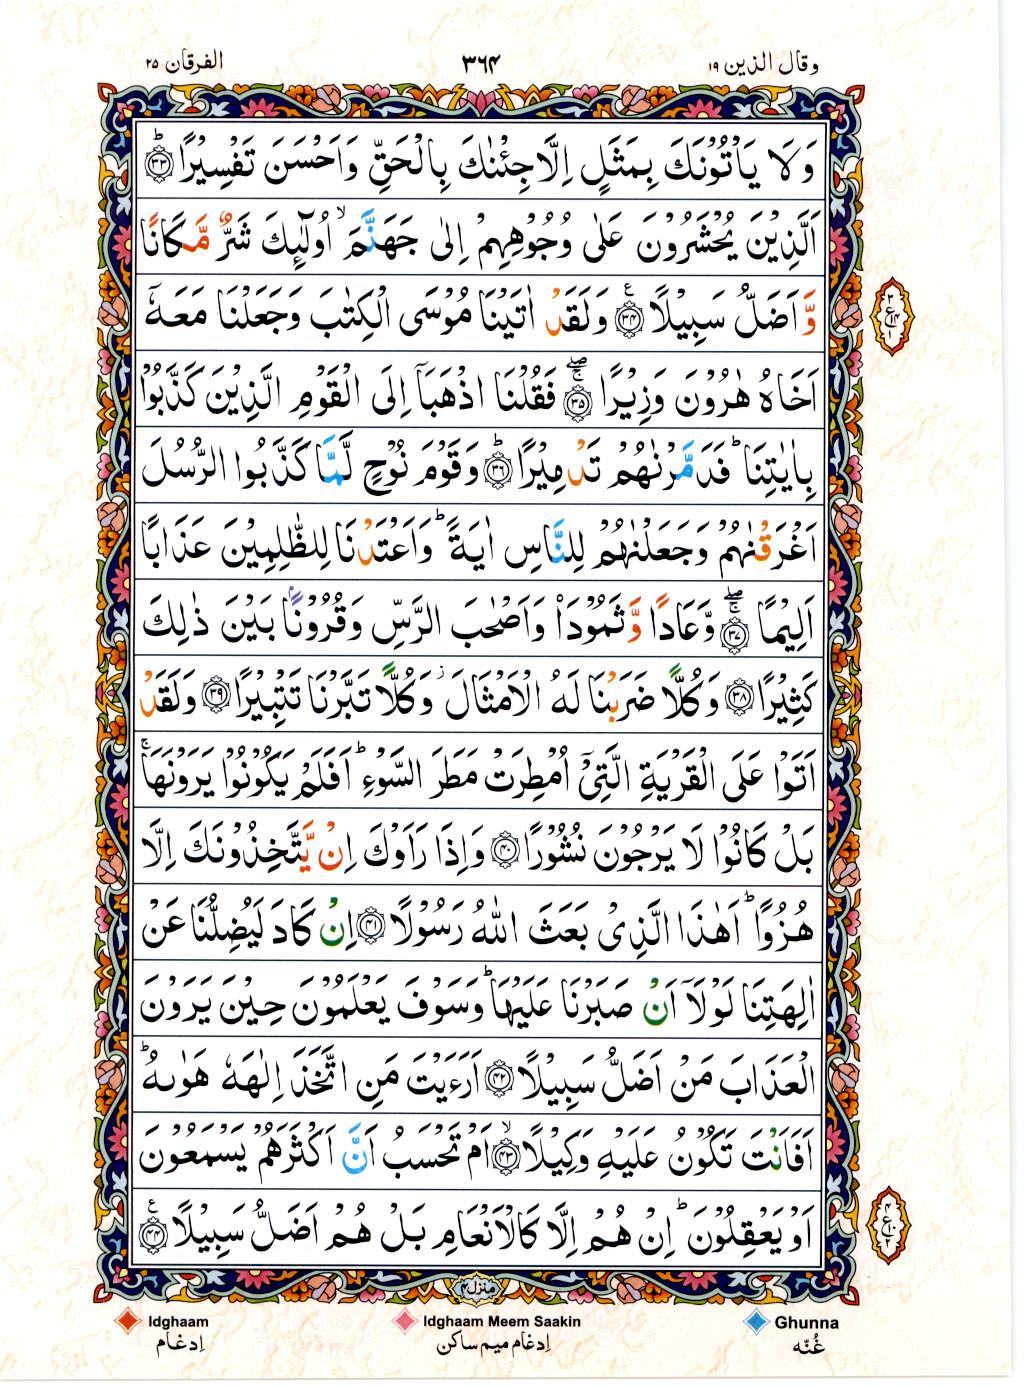 وقال الذین ۱۹
۳۶۴
الفرقان ۲۵
وَلَا يَاْتُوْنَكَ بِمَثَلٍ اِلَّا جِئْنٰكَ بِالْحَقِّ وَاَحْسَنَ تَفْسِيْرًا ؕ ۳۳
اَلَّذِيْنَ يُحْشَرُوْنَ عَلٰى وُجُوْهِهِمْ اِلٰى جَهَنَّمَ ۙ اُولٰٓئِكَ شَرٌّ مَّكَانًا
وَّاَضَلُّ سَبِيْلًا ۳۴ ع وَلَقَدْ اٰتَيْنَا مُوْسَى الْكِتٰبَ وَجَعَلْنَا مَعَهٗٓ
اَخَاهُ هٰرُوْنَ وَزِيْرًا ۳۵ ۖۚ فَقُلْنَا اذْهَبَآ اِلَى الْقَوْمِ الَّذِيْنَ كَذَّبُوْا
بِاٰيٰتِنَا ؕ فَدَمَّرْنٰهُمْ تَدْمِيْرًا ؕ ۳۶ وَقَوْمَ نُوْحٍ لَّمَّا كَذَّبُوا الرُّسُلَ
اَغْرَقْنٰهُمْ وَجَعَلْنٰهُمْ لِلنَّاسِ اٰيَةً ؕ وَاَعْتَدْنَا لِلظّٰلِمِيْنَ عَذَابًا
اَلِيْمًا ۳۷ ۖۚ وَّعَادًا وَّثَمُوْدَاۡ وَاَصْحٰبَ الرَّسِّ وَقُرُوْنًۢا بَيْنَ ذٰلِكَ
كَثِيْرًا ۳۸ وَكُلًّا ضَرَبْنَا لَهُ الْاَمْثَالَ ز وَكُلًّا تَبَّرْنَا تَتْبِيْرًا ۳۹ وَلَقَدْ
اَتَوْا عَلَى الْقَرْيَةِ الَّتِيْٓ اُمْطِرَتْ مَطَرَ السَّوْءِ ؕ اَفَلَمْ يَكُوْنُوْا يَرَوْنَهَا ۚ
بَلْ كَانُوْا لَا يَرْجُوْنَ نُشُوْرًا ۴۰ وَاِذَا رَاَوْكَ اِنْ يَّتَّخِذُوْنَكَ اِلَّا
هُزُوًا ؕ اَهٰذَا الَّذِيْ بَعَثَ اللّٰهُ رَسُوْلًا ۴۱ اِنْ كَادَ لَيُضِلُّنَا عَنْ
اٰلِهَتِنَا لَوْلَآ اَنْ صَبَرْنَا عَلَيْهَا ؕ وَسَوْفَ يَعْلَمُوْنَ حِيْنَ يَرَوْنَ
الْعَذَابَ مَنْ اَضَلُّ سَبِيْلًا ۴۲ اَرَءَيْتَ مَنِ اتَّخَذَ اِلٰهَهٗ هَوٰىهُ ؕ
اَفَاَنْتَ تَكُوْنُ عَلَيْهِ وَكِيْلًا ۙ ۴۳ اَمْ تَحْسَبُ اَنَّ اَكْثَرَهُمْ يَسْمَعُوْنَ
اَوْ يَعْقِلُوْنَ ؕ اِنْ هُمْ اِلَّا كَالْاَنْعَامِ بَلْ هُمْ اَضَلُّ سَبِيْلًا ۴۴ ع
منزل ۴
Idghaam
Idghaam Meem Saakin
Ghunna
اِدغام
اِدغام میم ساکن
غُنّه